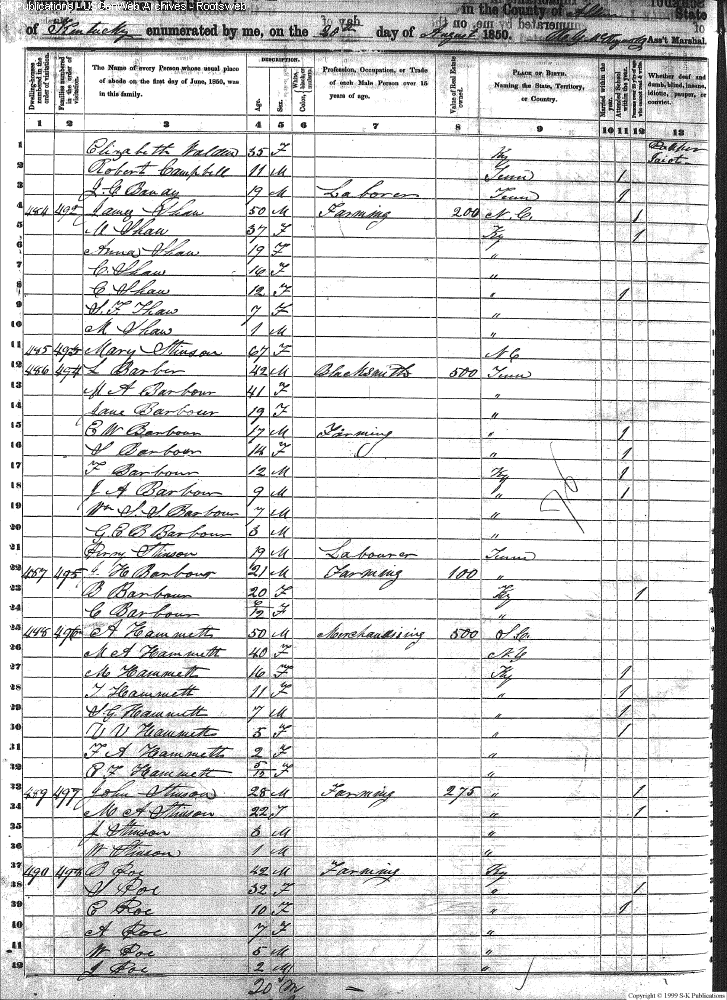 Publications - US GenWeb Archives - Rootsweb
in the County of Allen State
of Kentucky enumerated by me, on the 20th day of August 1850. Ass't Marshal.
Dwelling-houses numbered in the order of visitation.
Families numbered in the order of visitation.
The Name of every Person whose usual place of abode on the first day of June, 1850, was in this family.
DESCRIPTION.
Age.
Sex.
Color, White, black, or mulatto.
Profession, Occupation, or Trade of each Male Person over 15 years of age.
Value of Real Estate owned.
PLACE OF BIRTH. Naming the State, Territory, or Country.
Married within the year.
Attended School within the year.
Whether deaf and dumb, blind, insane, idiotic, pauper, or convict.
1 2 3 4 5 6 7 8 9 10 11 12 13
1 Elizabeth 35 F Ky
2 Robert Campbell 11 M Tenn 1
3 J. G. 19 M Laborer Tenn 1
4 484 492 James Shaw 50 M Farming 200 N.C. 1
5 M Shaw 37 F Ky 1
6 Anna Shaw 19 F "
7 C. Shaw 16 F "
8 C Shaw 12 F " 1
9 S. F Shaw 7 F "
10 M Shaw 1 M "
11 485 493 Mary Stinson 67 F N C
12 486 494 L Barber 42 M Blacksmith 500 Tenn
13 M A Barbour 41 F "
14 Jane Barbour 19 F "
15 E W Barbour 17 M Farming " 1
16 S Barbour 14 F " 1
17 F Barbour 12 M Ky 1
18 J A Barbour 9 M " 1
19 Wm S. S. Barbour 7 M "
20 G. E B Barbour 3 M "
21 Perry Stinson 19 M Labourer Tenn
22 487 495 H Barbour 21 M Farming 100 "
23 B Barbour 20 F Ky 1
24 C Barbour /12 F "
25 488 496 A Hammett 50 M Merchandising 500 S.C.
26 M A Hammett 40 F N.Y
27 M Hammett 16 F Ky 1
28 T Hammett 11 F " 1
29 S G Hammett 7 M " 1
30 V V Hammett 5 F " 1
31 F A Hammett 2 F "
32 E F Hammett 5/12 F "
33 489 497 John Stinson 28 M Farming 275 " 1
34 M A Stinson 22 F " 1
35 J Stinson 3 M "
36 W Stinson 1 M "
37 490 498 B Roe 42 M Farming Ky
38 S Roe 32 F " 1
39 E Roe 10 F " 1
40 A Roe 7 F "
41 W Roe 5 M "
42 J Roe 2 M "
20 M
Copyright © 1999 S-K Publications